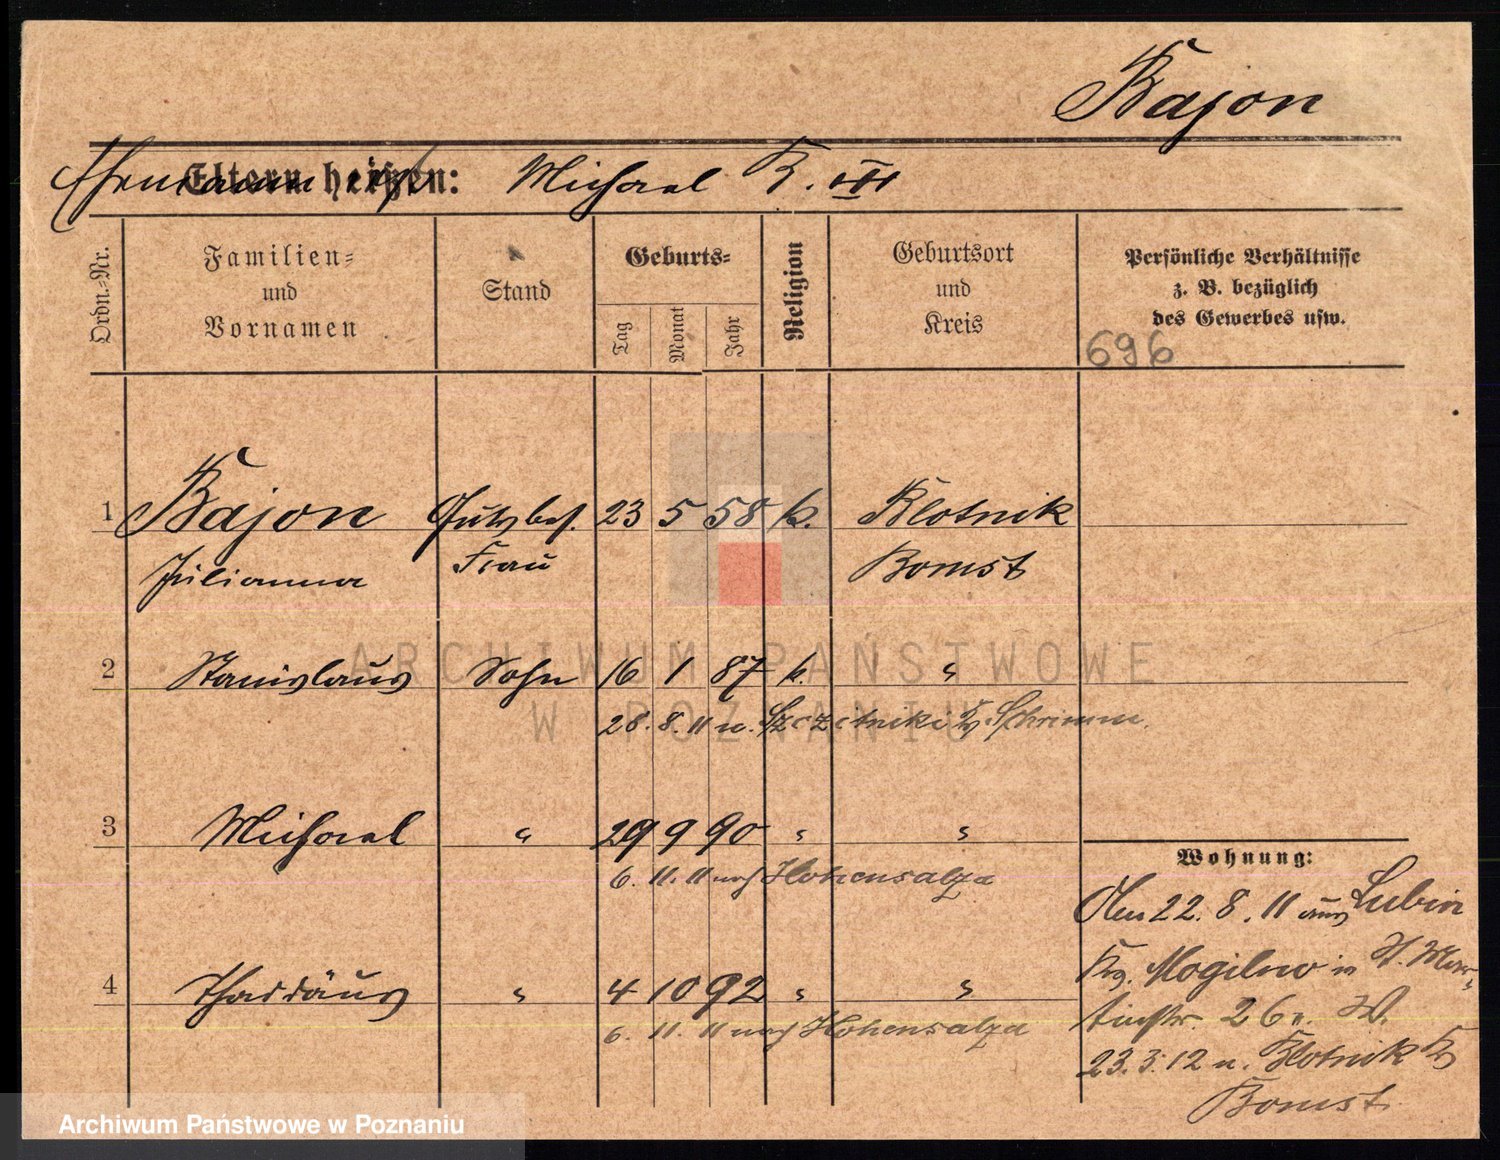 Kajon
Eltern heißen:
Ehemann Michael K. III
Ordn.-Nr.
Familien-
und
Vornamen
Stand
Geburts-
Tag
Monat
Jahr
Religion
Geburtsort
und
Kreis
Persönliche Verhältnisse
z. B. bezüglich
des Gewerbes usw.
696
1 Kajon Gutsbes. 23 5 58 k. Blotnik
Julianna Frau Bomst
2 Stanislaus Sohn 16 1 87 k. "
28. 8. 11 n. Szczitniki Kr. Schrimm.
3 Michael " 29 9 90 " "
6. 11. 11 nach Hohensalza
4 Thaddäus " 4 10 92 " "
6. 11. 11 nach Hohensalza
Wohnung:
22. 8. 11 aus Lubin
Krs. Mogilno in St. Mar-
tinstr. 26 II. W.
23. 3. 12 n. Blotnik Kr.
Bomst.
ARCHIWUM PAŃSTWOWE
W POZNANIU
Archiwum Państwowe w Poznaniu